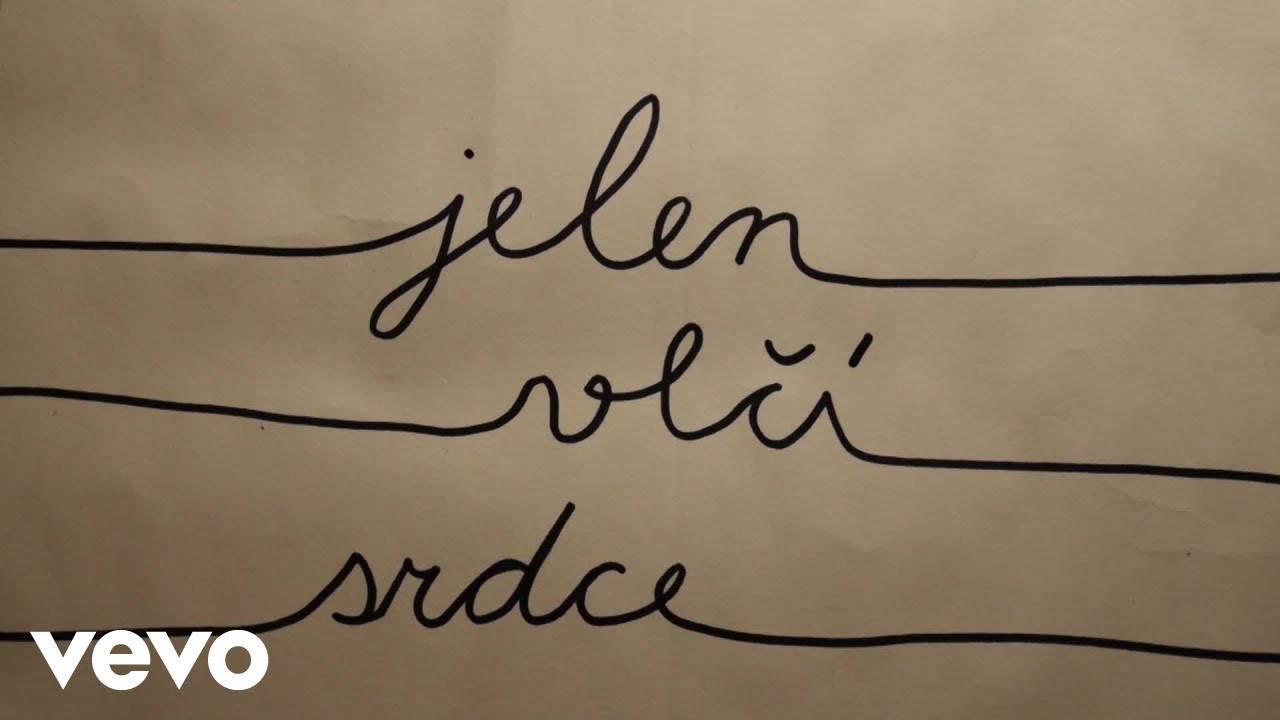 jelen
vlčí
srdce
vevo